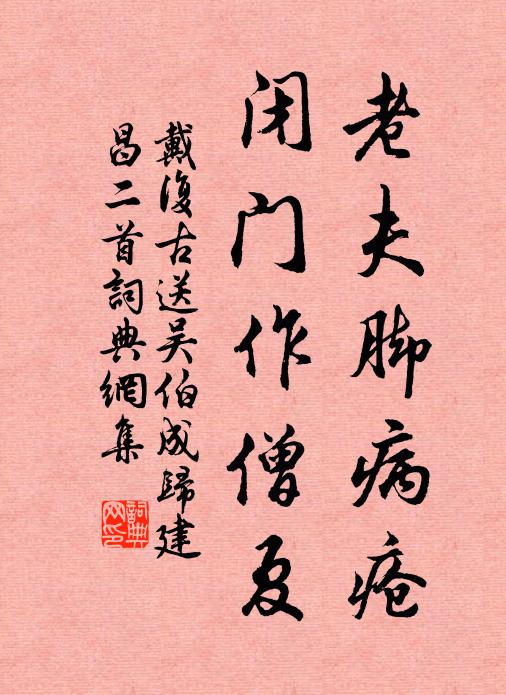 老夫脚病疮
闭门作僧夏
戴復古送吴伯成歸建
昌二首詞典網集
詞典網印